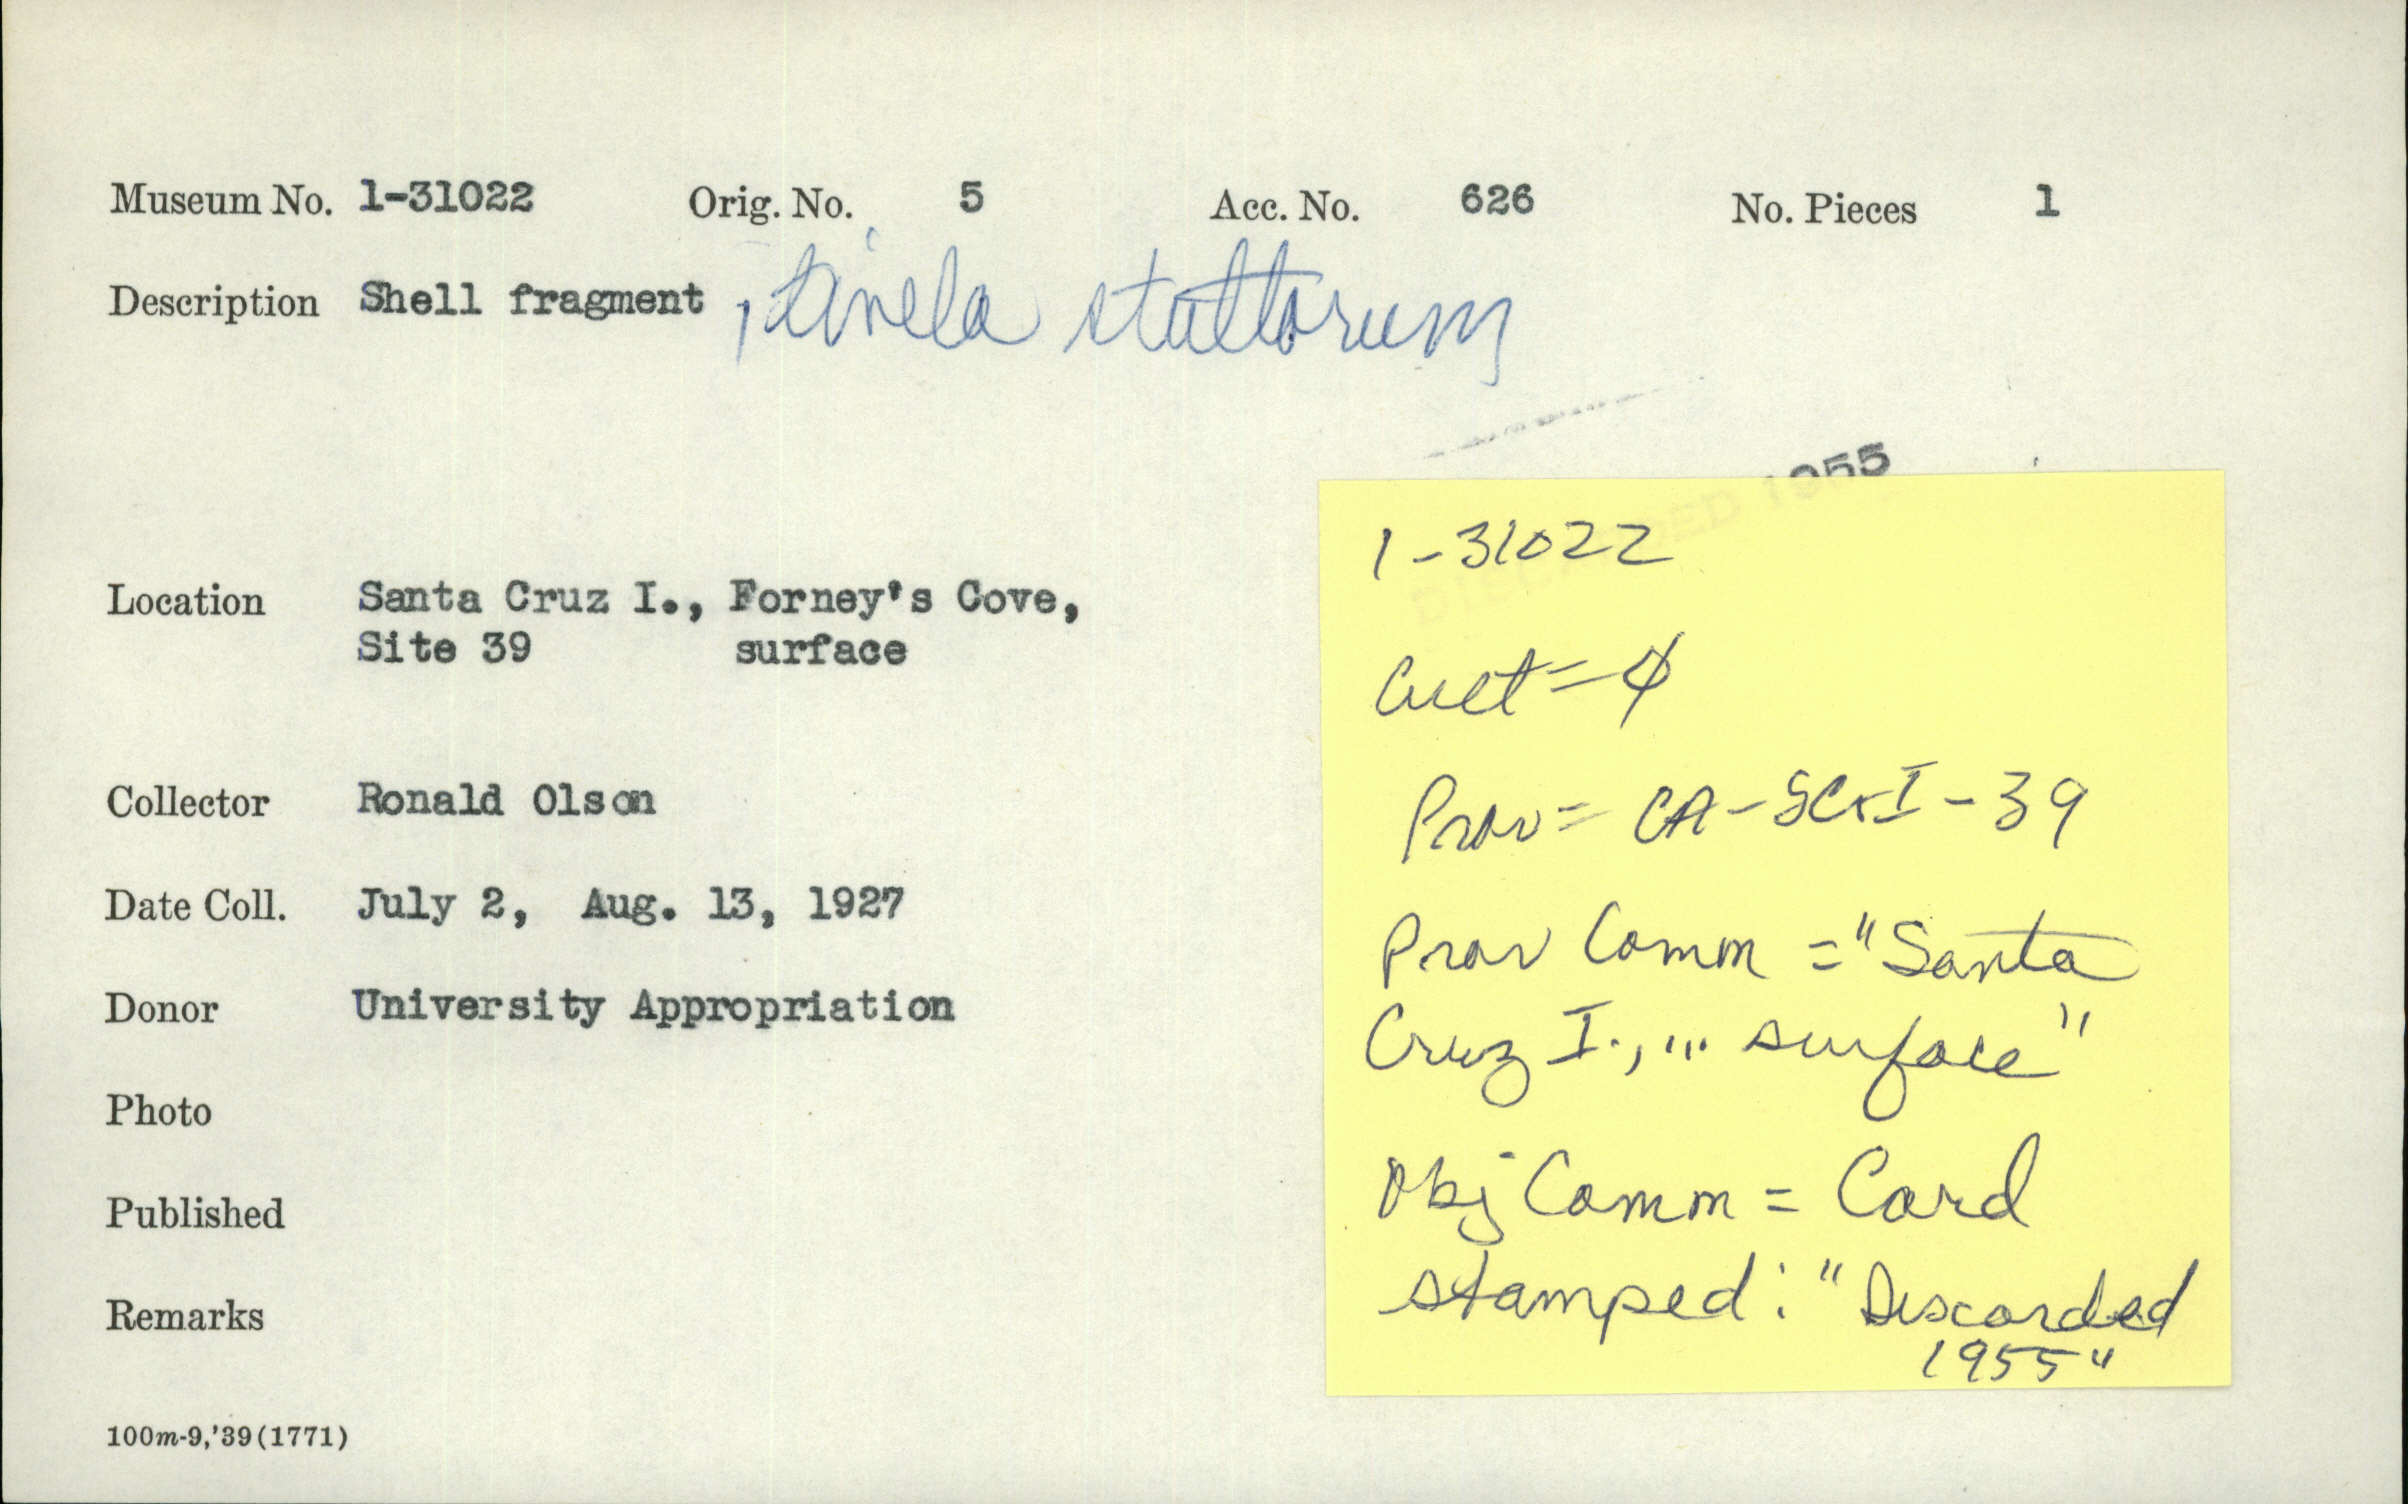 Museum No. 1-31022 Orig. No. 5 Acc. No. 626 No. Pieces 1
Description Shell fragment, tivela stultorum
DISCARDED 1955
Location Santa Cruz I., Forney's Cove,
Site 39 surface
Collector Ronald Olson
Date Coll. July 2, Aug. 13, 1927
Donor University Appropriation
Photo
Published
Remarks
100m-9,'39(1771)
1-31022
Cult = ϕ
Prov = CA-SCrI-39
Prov Comm = "Santa
Cruz I., ... surface"
Obj Comm = Card
stamped: "Discarded
1955"